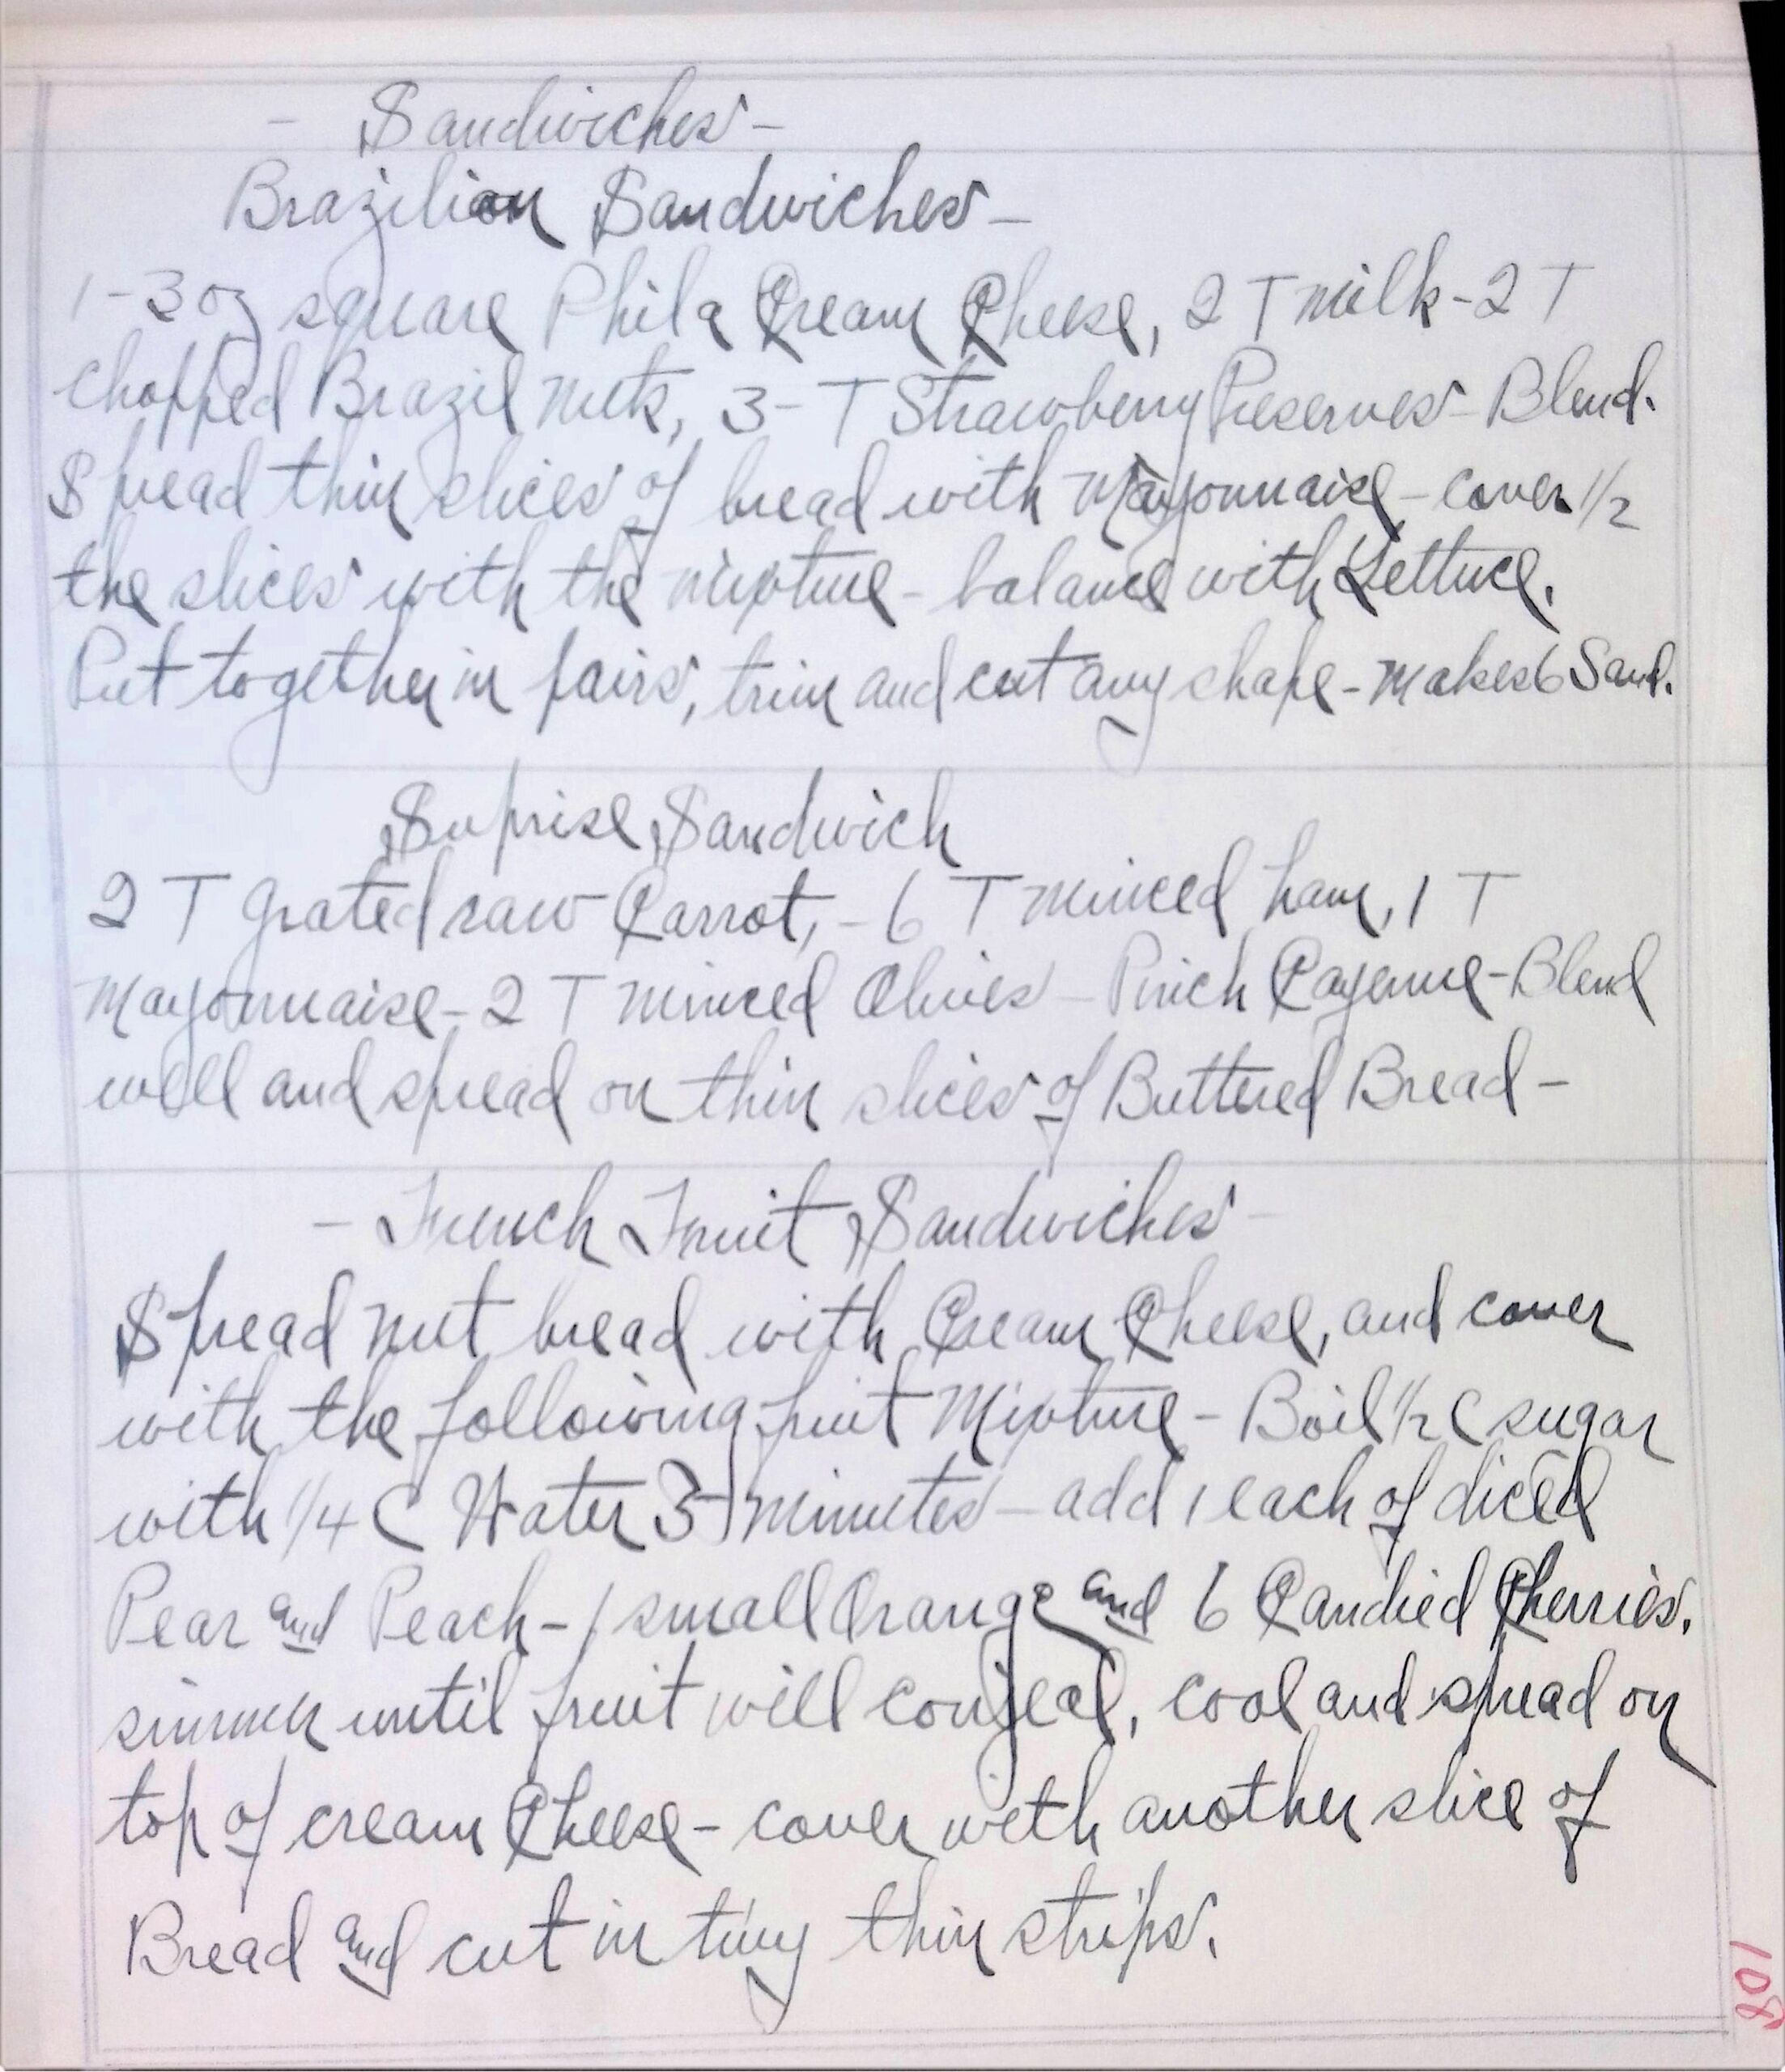 - Sandwiches -
Brazilian Sandwiches -
1-3 oz square Phila Cream Cheese, 2 T milk - 2 T
chopped Brazil nuts, 3 - T Strawberry Preserves - Blend.
Spread thin slices of bread with Mayonnaise - cover 1/2
the slices with the mixture - balance with Lettuce.
Put together in pairs, trim and cut any shape - Makes 6 Sand.
Suprise Sandwich
2 T grated raw Carrot, - 6 T minced ham, 1 T
Mayonnaise - 2 T minced Olives - Pinch Cayenne - Blend
well and spread on thin slices of Buttered Bread -
- French Fruit Sandwiches -
Spread nut bread with Cream Cheese, and cover
with the following fruit Mixture - Boil 1/2 C sugar
with 1/4 C Water 3 minutes - add 1 each of diced
Pear and Peach - 1 small Orange and 6 Candied Cherries.
simmer until fruit will congeal, cool and spread on
top of cream Cheese - cover with another slice of
Bread and cut in tiny thin strips.
108